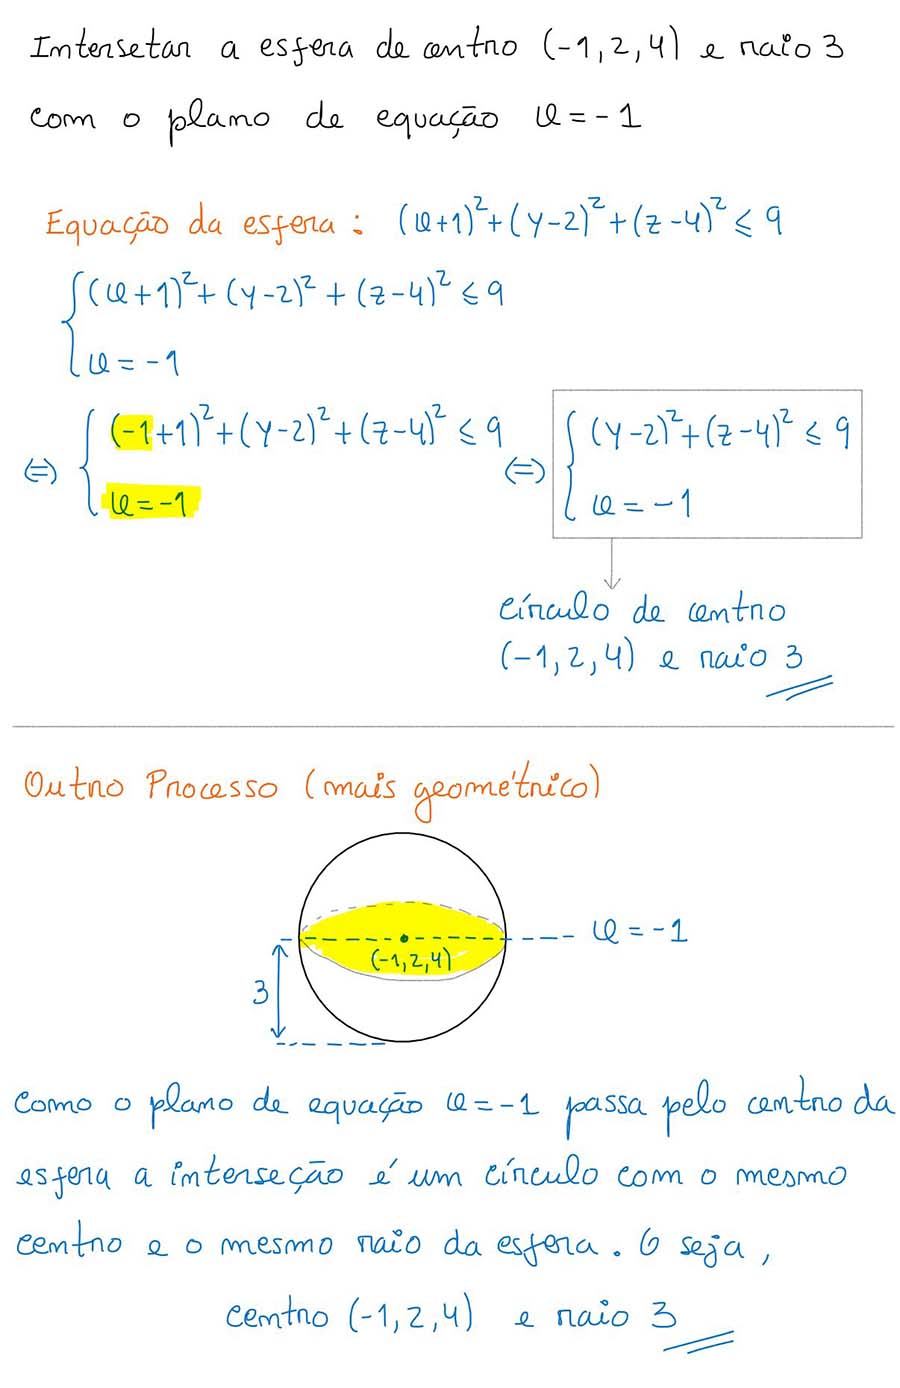 Intersetar a esfera de centro (-1, 2, 4) e raio 3
com o plano de equação x = -1
Equação da esfera: (x+1)²+(y-2)²+(z-4)² ≤ 9
{(x+1)²+(y-2)²+(z-4)² ≤ 9
x = -1
⇔ {(-1+1)²+(y-2)²+(z-4)² ≤ 9
x = -1
⇔ {(y-2)²+(z-4)² ≤ 9
x = -1
círculo de centro
(-1, 2, 4) e raio 3
Outro Processo (mais geométrico)
x = -1
(-1, 2, 4)
3
Como o plano de equação x = -1 passa pelo centro da
esfera a interseção é um círculo com o mesmo
centro e o mesmo raio da esfera. O seja,
centro (-1, 2, 4) e raio 3